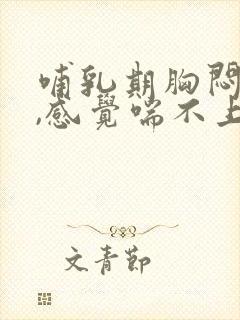 哺乳期胸悶
,感覺喘不上
文青節